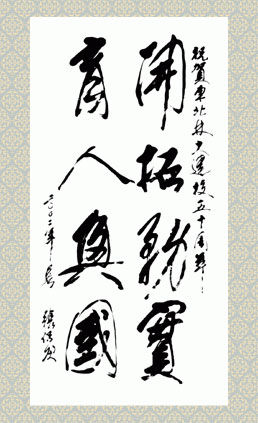 祝賀東北林大建校五十周年
開拓務實
育人興國
二〇〇二年